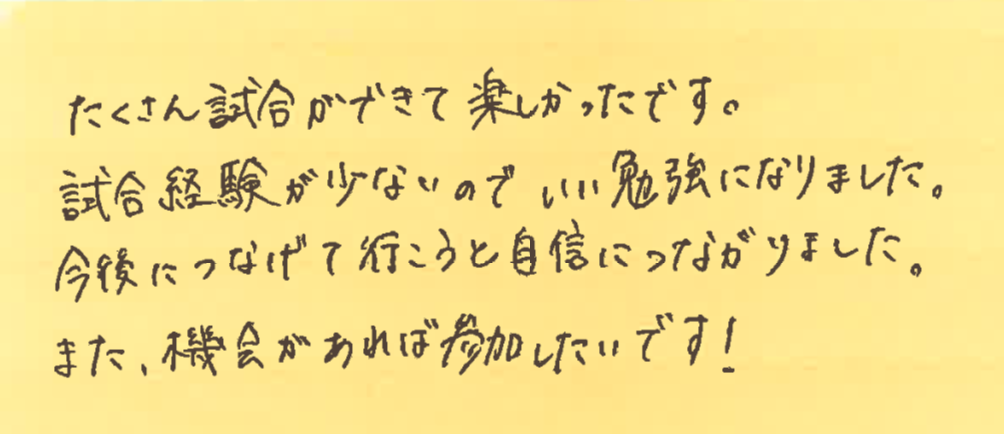 たくさん試合ができて楽しかったです。
試合経験が少ないので いい勉強になりました。
今後につなげて行こうと自信につながりました。
また、機会があれば参加したいです！